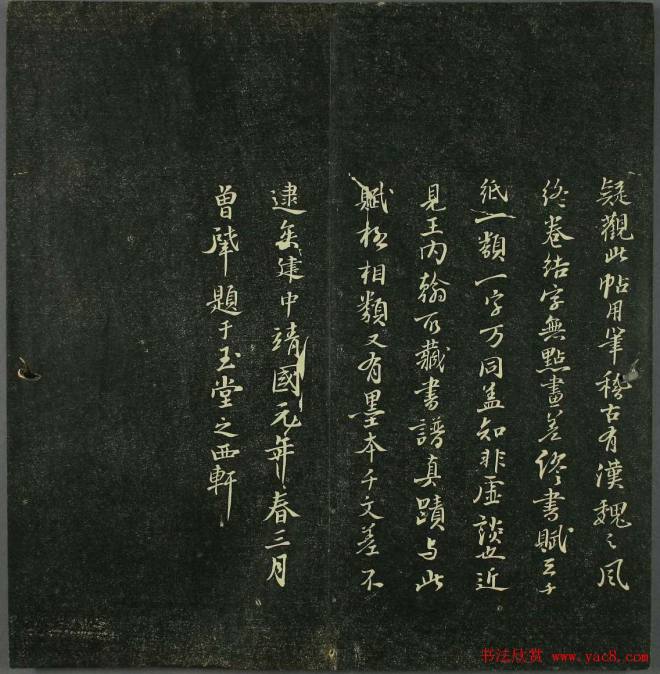 疑觀此帖用筆稽古有漢魏之風
終卷結字無點畫差繆書賦云千
紙一類一字万同盖知非虛談也近
見王內翰所藏書譜真蹟与此
賦極相類又有墨本千文差不
逮矣建中靖國元年春三月
曾肇題于玉堂之西軒
书法欣赏 www.yac8.com